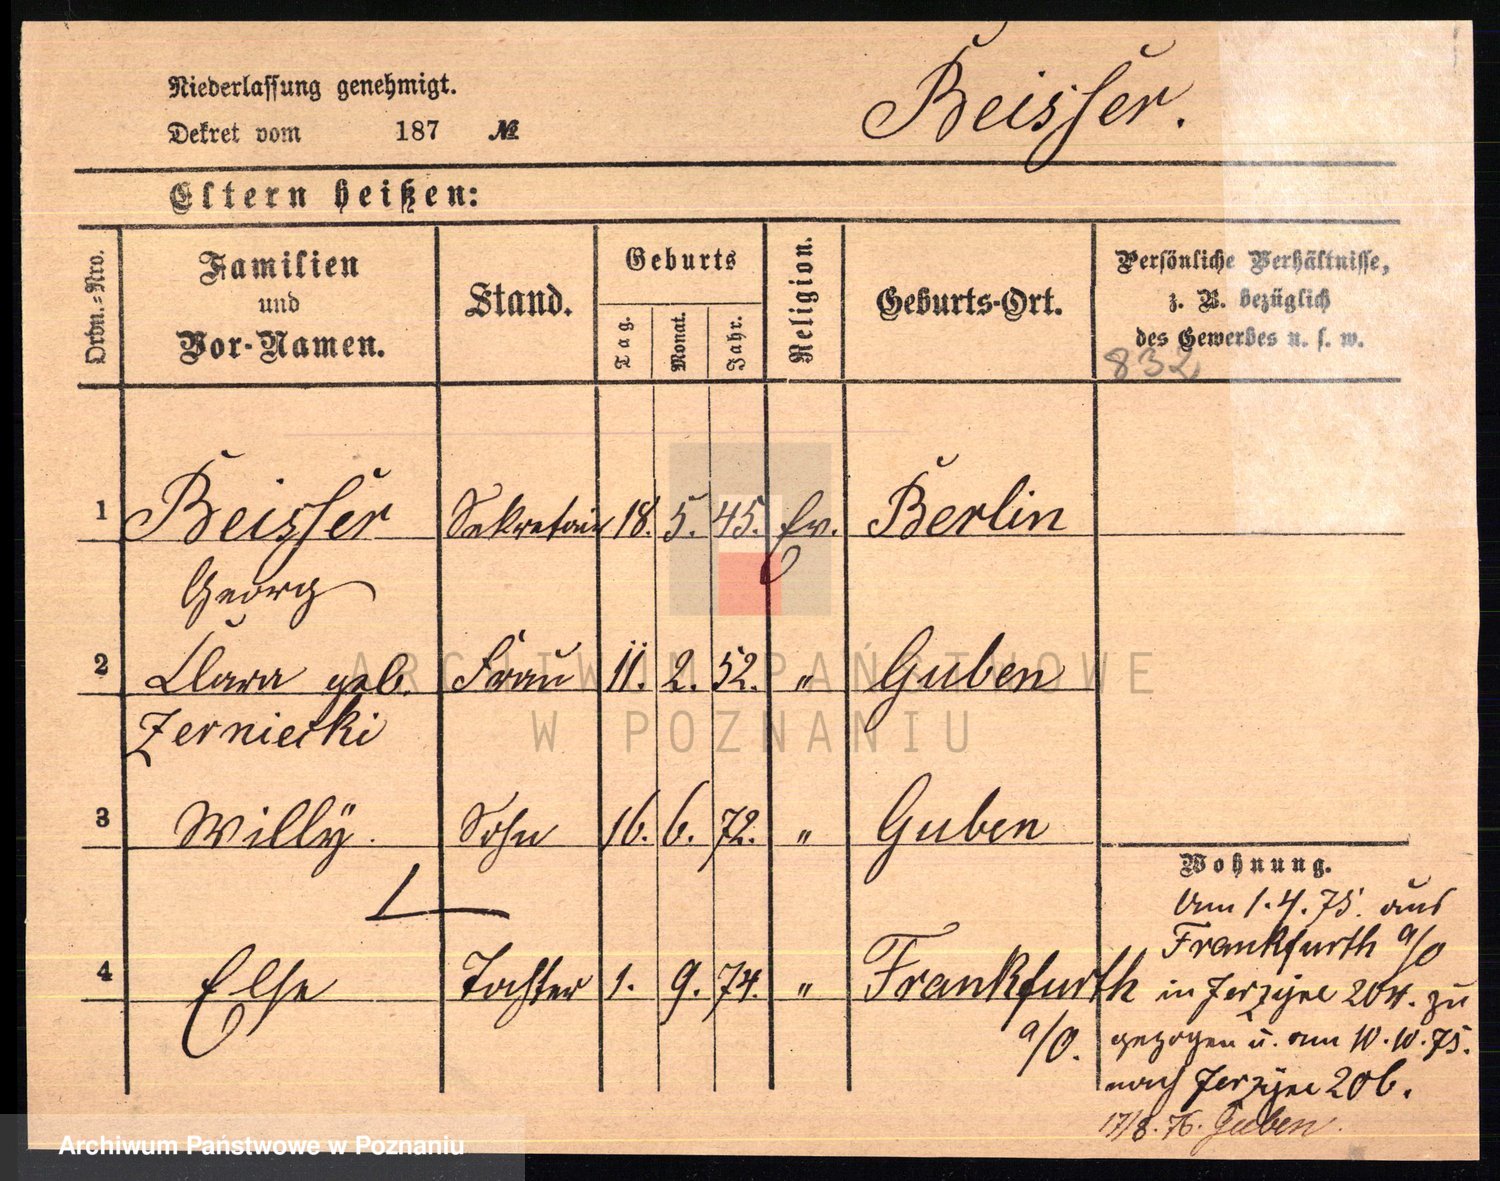 Niederlassung genehmigt.
Dekret vom 187 №
Beisser.
Eltern heißen:
Ordn.=Nro.
Familien
und
Vor-Namen.
Stand.
Geburts
Tag.
Monat.
Jahr.
Religion.
Geburts-Ort.
Persönliche Verhältnisse,
z. B. bezüglich
des Gewerbes u. s. w.
832
1 Beisser Sekretair 18. 5. 45. Ev. Berlin
Georg
2 Clara geb. Frau 11. 2. 52. " Guben
Zerniecki
3 Willÿ. Sohn 16. 6. 72. " Guben
Wohnung.
Am 1.4.75. aus
Frankfurth a/O
4 Else Tochter 1. 9. 74. " Frankfurth
a/O.
in Jerzyce 204. zu
gezogen u. am 10.10.75.
nach Jerzyce 206.
17/8.76. Guben.
ARCHIWUM PAŃSTWOWE
W POZNANIU
Archiwum Państwowe w Poznaniu